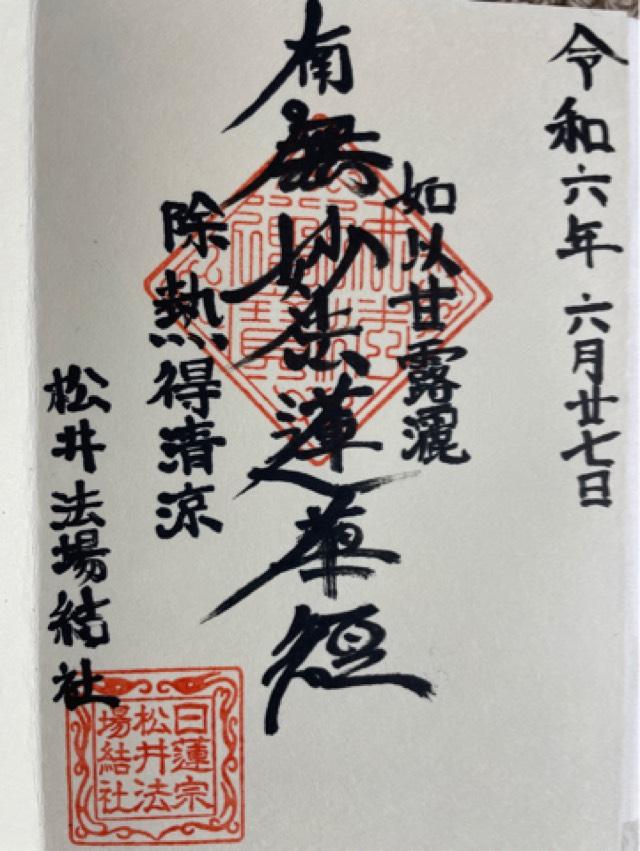 令和六年 六月廿七日
如以甘露灑
南無妙法蓮華経
除熱得清涼
松井法場結社
日蓮宗
松井法
場結社